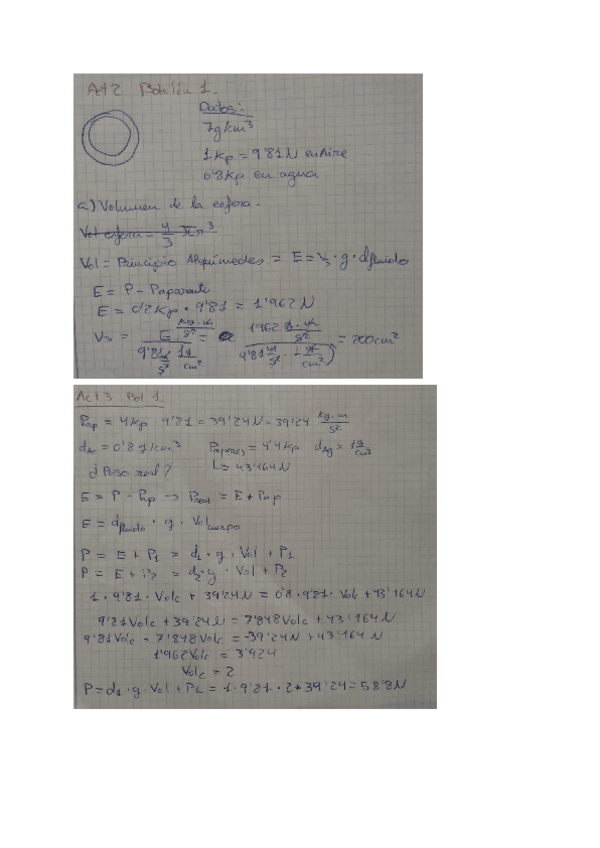 Act 2 Boletín 1.
Datos:
7g/cm³
1 Kp = 9'81N en Aire
0'8Kp en agua
a) Volumen de la esfera.
Vol esfera = 4/3 π r³
Vol = Principio Alquímedes = E = Vs · g · dfluido
E = P - Paparente
E = 0'2Kp · 9'81 = 1'962 N
Vs = E kg·m/s² / 9'81 m/s² · 1g/cm³ = 1962 g·m/s² / 9'81 m/s² · 1 g/cm³ = 200cm³
Act 3 Bol 1.
Pap = 4Kp · 9'81 = 39'24N = 39'24 Kg·m/s²
dAc = 0'8 g/cm³ Papac = 4'4Kp dAg = 1g/cm³
¿Peso real? L = 43'164N
E = P - Pap → Preal = E + Pap
E = dfluido · g · Volcuerpo
P = E + P₁ = d₁ · g · Vol + P₁
P = E + P₂ = d₂ · g · Vol + P₂
1 · 9'81 · Volc + 39'24N = 0'8 · 9'81 · Volc + 43'164N
9'81Volc + 39'24N = 7'848Volc + 43'164N
9'81Volc - 7'848Volc = -39'24N + 43'164N
1'962Volc = 3'924
Volc = 2
P = d₁ · g · Vol + P₁ = 1 · 9'81 · 2 + 39'24 = 58'8N